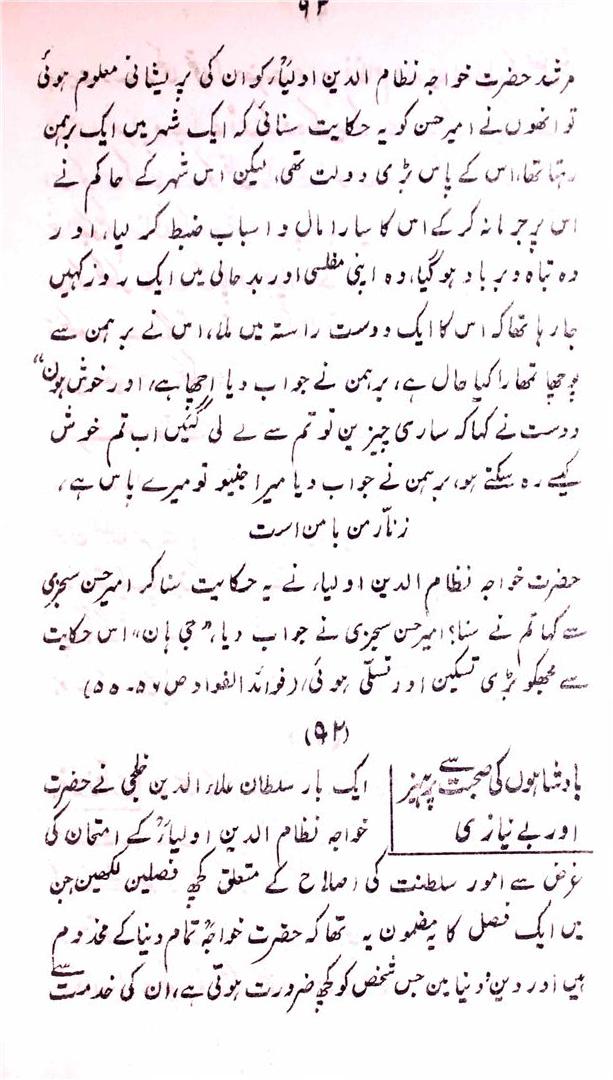 ۹۲
مرشد حضرت خواجہ نظام الدین اولیاؒء کو ان کی پریشانی معلوم ہوئی
تو انھوں نے امیر حسن کو یہ حکایت سنائی کہ ایک شہر میں ایک برہمن
رہتا تھا، اس کے پاس بڑی دولت تھی، لیکن اس شہر کے حاکم نے
اس پر جرمانہ کر کے اس کا سارا مال و اسباب ضبط کر لیا، اور
وہ تباہ و برباد ہوگیا، وہ اپنی مفلسی اور بدحالی میں ایک روز کہیں
جا رہا تھا کہ اس کا ایک دوست راستہ میں ملا، اس نے برہمن سے
پوچھا تمھارا کیا حال ہے، برہمن نے جواب دیا اچھا ہے، اور خوش ہون“
دوست نے کہا کہ ساری چیزین تو تم سے لے لی گئیں اب تم خوش
کیسے رہ سکتے ہو، برہمن نے جواب دیا میرا جنیو تو میرے پاس ہے،
زنّار من با من است
حضرت خواجہ نظام الدین اولیاء نے یہ حکایت سنا کر امیر حسن سجزی
سے کہا تم نے سنا؟ امیر حسن سجزی نے جواب دیا، ”جی ہان“ اس حکایت
سے مجھکو بڑی تسکین اور تسلّی ہوئی، (فوائد الفواد ص ۵۶-۵۵)
(۹۲)
بادشاہوں کی صحبت سے پرہیز
اور بے نیازی
ایک بار سلطان علاء الدین خلجی نے حضرت
خواجہ نظام الدین اولیاؒء کے امتحان کی
غرض سے امور سلطنت کی اصلاح کے متعلق کچھ فصلین لکھین جن
میں ایک فصل کا یہ مضمون یہ تھا کہ حضرت خواجہؒ تمام دنیا کے مخدوم
ہیں اور دین و دنیا مین جس شخص کو کچھ ضرورت ہوتی ہے، ان کی خدمت سے